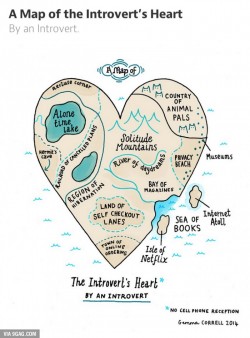 A Map of the Introvert's Heart
By an Introvert.
A Map of
Recluse corner
COUNTRY
OF
ANIMAL
PALS
Alone
time
lake
Solitude
Mountains
HERMIT'S
CAVE
RAILROAD OF CANCELLED PLANS
RIVER of daydreams
PRIVACY
BEACH
Museums
REGION OF
HIBERNATION
BAY OF
MAGAZINES
LAND OF
SELF CHECKOUT
LANES
SEA OF
BOOKS
Internet
Atoll
TOWN OF
ONLINE
ORDERING
Isle of
Netflix
The Introvert's Heart
BY AN INTROVERT
*NO CELL PHONE RECEPTION
Gemma CORRELL 2014
VIA 9GAG.COM